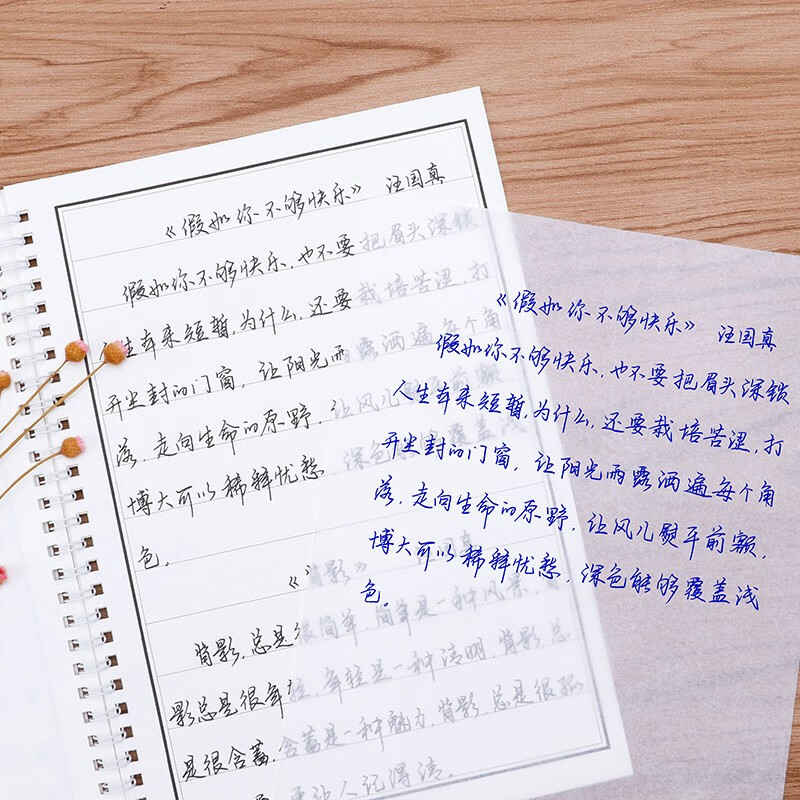 《假如你不够快乐》 汪国真
假如你不够快乐,也不要把眉头深锁
人生本来短暂,为什么,还要栽培苦涩,打
开尘封的门窗,让阳光雨露洒遍每个角
落,走向生命的原野,让风儿熨平前额
博大可以稀释忧愁 深色能够覆盖浅
色。
《背影》 国真
背影,总是很简单,简单是一种风景,
影总是很年轻,年轻是一种清明,背影,总
是很含蓄,含蓄是一种魅力,背影,总是很孤
更让人记得清。
《假如你不够快乐》 汪国真
假如你不够快乐,也不要把眉头深锁
人生本来短暂,为什么,还要栽培苦涩,打
开尘封的门窗,让阳光雨露洒遍每个角
落,走向生命的原野,让风儿熨平前额,
博大可以稀释忧愁,深色能够覆盖浅
色。